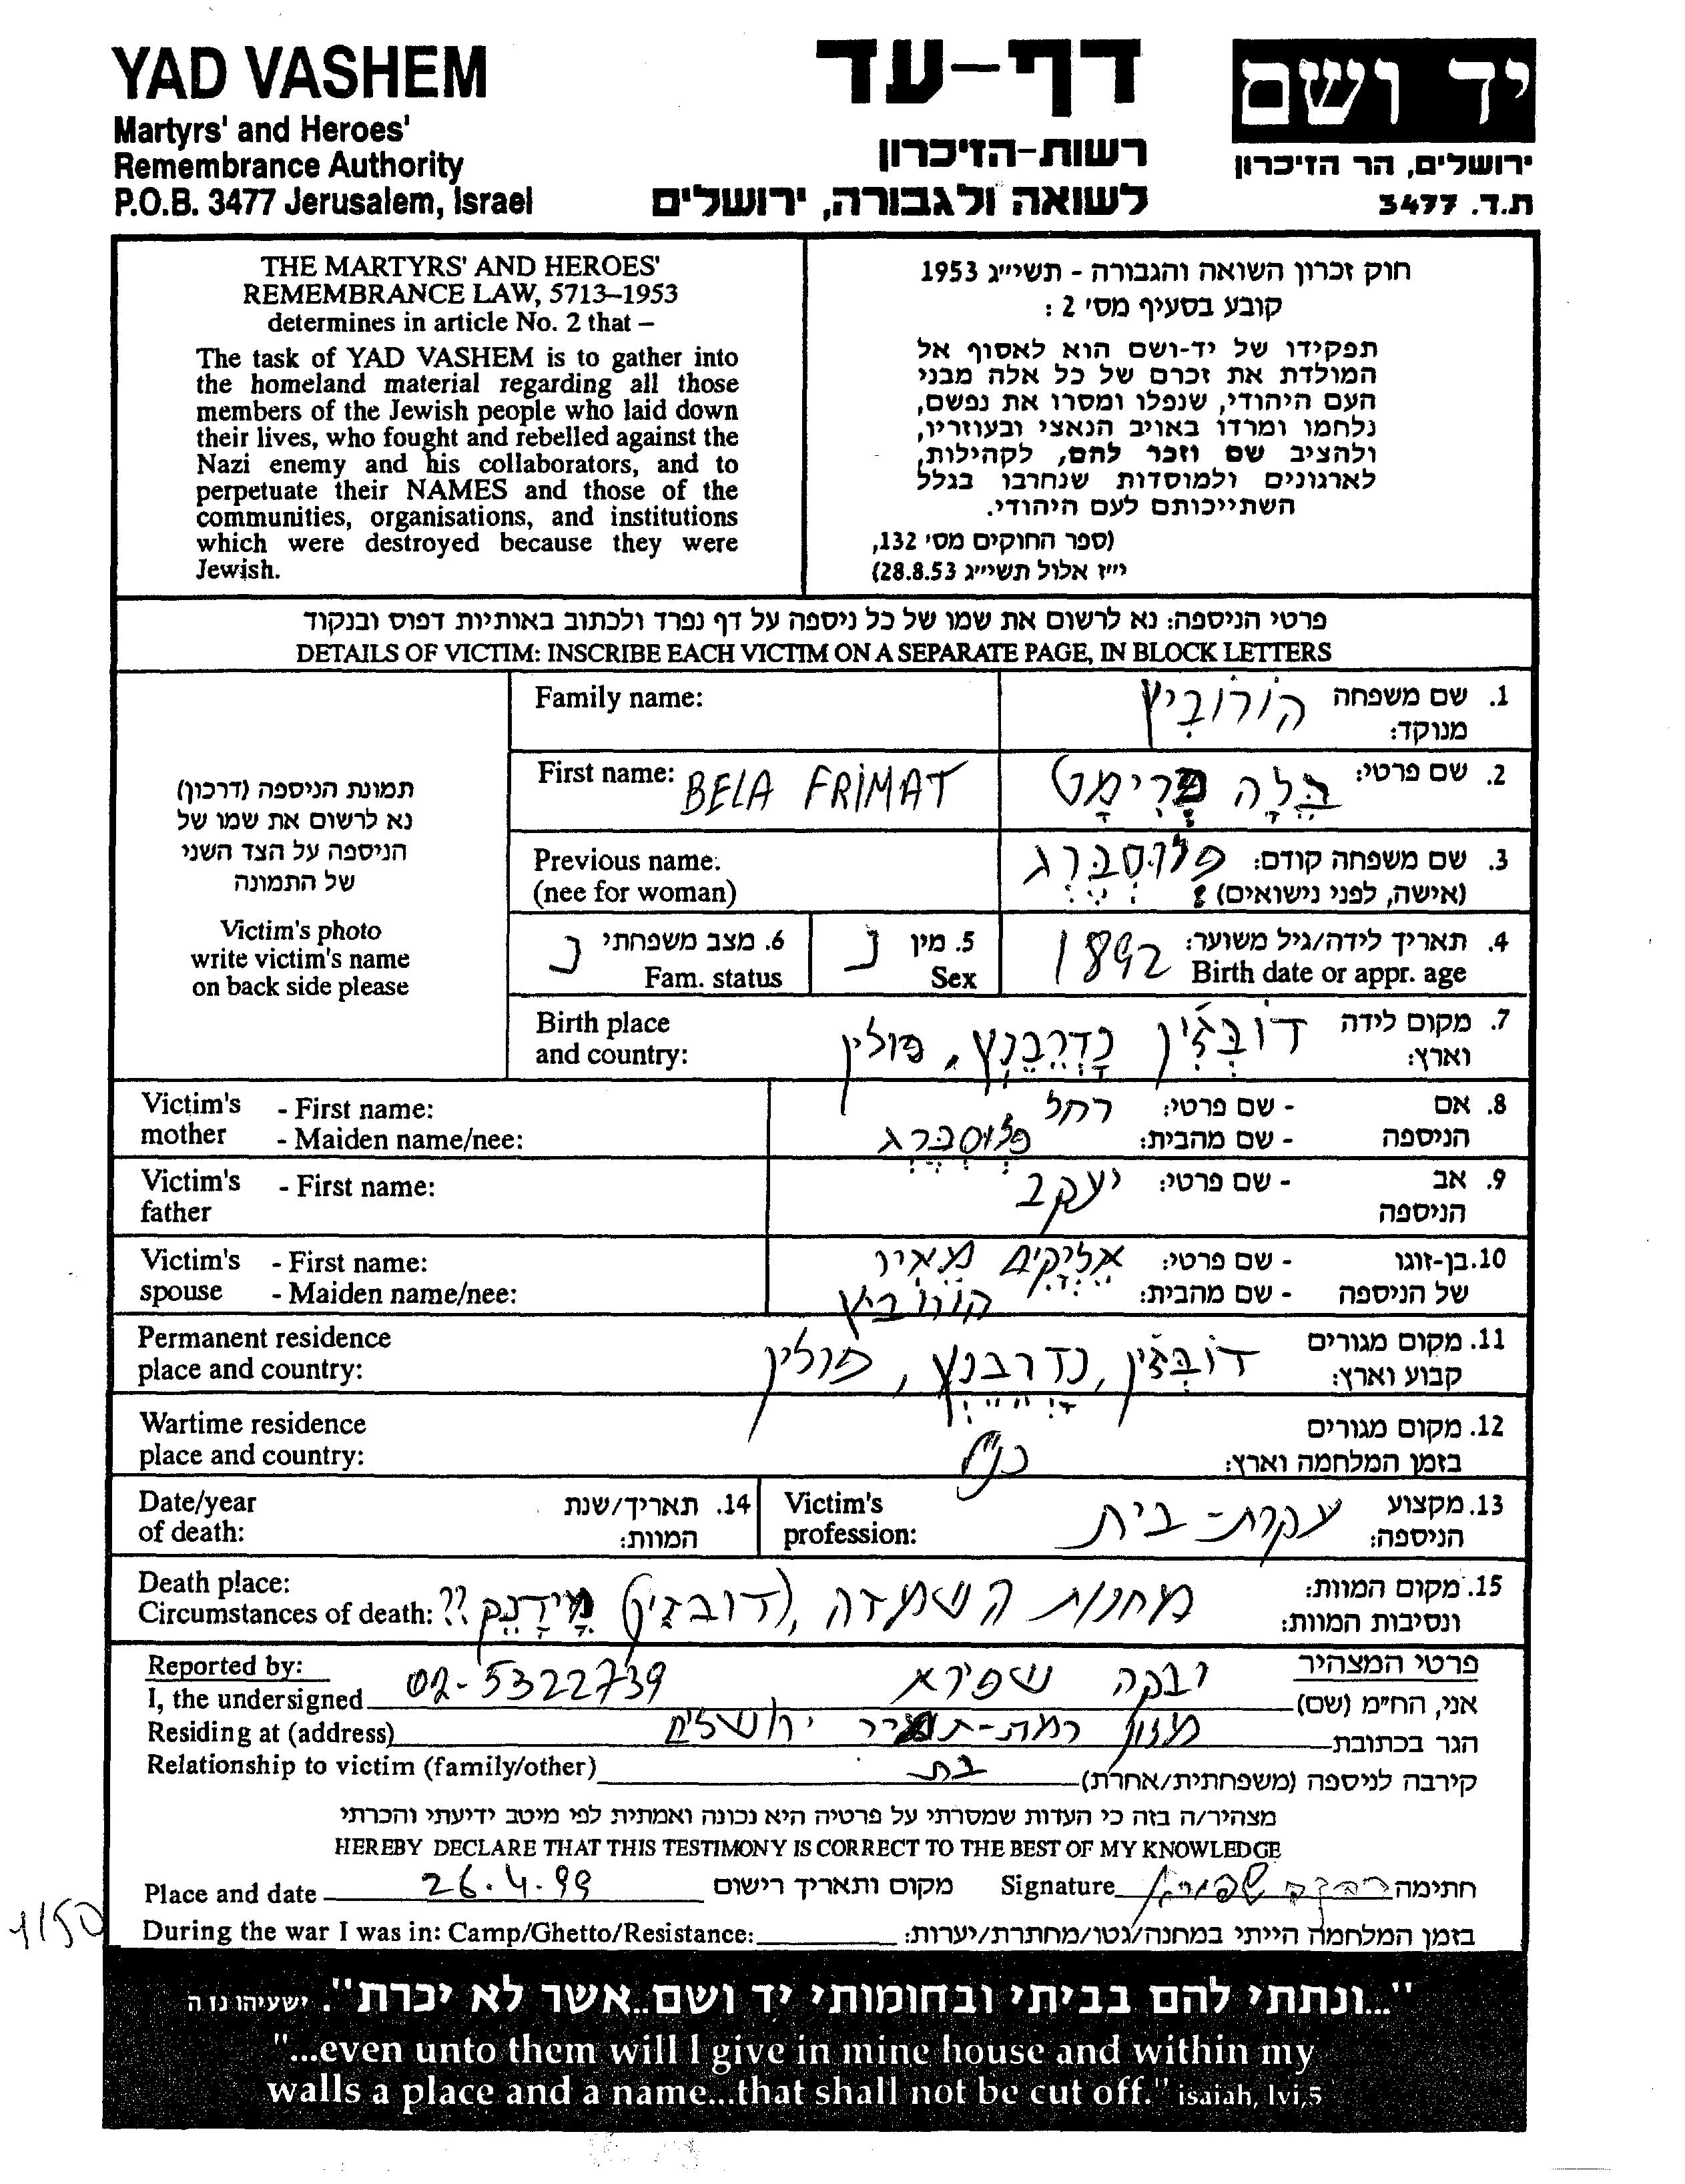 YAD VASHEM
Martyrs' and Heroes'
Remembrance Authority
P.O.B. 3477 Jerusalem, Israel
דף-עד
רשות-הזיכרון
לשואה ולגבורה, ירושלים
יד ושם
ירושלים, הר הזיכרון
ת.ד. 3477
THE MARTYRS' AND HEROES'
REMEMBRANCE LAW, 5713–1953
determines in article No. 2 that –
The task of YAD VASHEM is to gather into
the homeland material regarding all those
members of the Jewish people who laid down
their lives, who fought and rebelled against the
Nazi enemy and his collaborators, and to
perpetuate their NAMES and those of the
communities, organisations, and institutions
which were destroyed because they were
Jewish.
חוק זכרון השואה והגבורה - תשי״ג 1953
קובע בסעיף מס׳ 2 :
תפקידו של יד-ושם הוא לאסוף אל
המולדת את זכרם של כל אלה מבני
העם היהודי, שנפלו ומסרו את נפשם,
נלחמו ומרדו באויב הנאצי ובעוזריו,
ולהציב שם וזכר להם, לקהילות,
לארגונים ולמוסדות שנחרבו בגלל
השתייכותם לעם היהודי.
(ספר החוקים מס׳ 132,
י״ז אלול תשי״ג 28.8.53)
פרטי הניספה: נא לרשום את שמו של כל ניספה על דף נפרד ולכתוב באותיות דפוס ובנקוד
DETAILS OF VICTIM: INSCRIBE EACH VICTIM ON A SEPARATE PAGE, IN BLOCK LETTERS
תמונת הניספה (דרכון)
נא לרשום את שמו של
הניספה על הצד השני
של התמונה
Victim's photo
write victim's name
on back side please
Family name: הורוביץ 1. שם משפחה
מנוקד:
First name: BELA FRIMAT בלה פרימט 2. שם פרטי:
Previous name: פלוסברג 3. שם משפחה קודם:
(nee for woman) (אישה, לפני נישואים)
4. תאריך לידה/גיל משוער: 1892 5. מין נ 6. מצב משפחתי נ
Birth date or appr. age Sex Fam. status
Birth place דובז׳ין נדרבנץ, פולין 7. מקום לידה
and country: וארץ:
Victim's - First name: רחל - שם פרטי: 8. אם
mother - Maiden name/nee: פלוסברג - שם מהבית: הניספה
Victim's - First name: יעקב - שם פרטי: 9. אב
father הניספה
Victim's - First name: אליקים מאיר - שם פרטי: 10. בן-זוגו
spouse - Maiden name/nee: הורוביץ - שם מהבית: של הניספה
Permanent residence דובז׳ין, נדרבנץ, פולין 11. מקום מגורים
place and country: קבוע וארץ:
Wartime residence 12. מקום מגורים
place and country: כנ״ל בזמן המלחמה וארץ:
Date/year 14. תאריך/שנת Victim's עקרת-בית 13. מקצוע
of death: המוות: profession: הניספה:
Death place: 15. מקום המוות:
Circumstances of death: מחנות השמדה, (דובזין) מידנק ?? ונסיבות המוות:
Reported by: פרטי המצהיר
I, the undersigned 02-5322739 רבקה שפירא אני, הח״מ (שם)
Residing at (address) רמת-תמיר ירושלים הגר בכתובת
Relationship to victim (family/other) בת קירבה לניספה (משפחתית/אחרת)
מצהיר/ה בזה כי העדות שמסרתי על פרטיה היא נכונה ואמתית לפי מיטב ידיעתי והכרתי
HEREBY DECLARE THAT THIS TESTIMONY IS CORRECT TO THE BEST OF MY KNOWLEDGE
Place and date 26.4.99 מקום ותאריך רישום Signature רבקה שפירא חתימה
1/50
During the war I was in: Camp/Ghetto/Resistance: בזמן המלחמה הייתי במחנה/גטו/מחתרת/יערות:
"...ונתתי להם בביתי ובחומותי יד ושם..אשר לא יכרת". ישעיהו נו ה
"...even unto them will I give in mine house and within my
walls a place and a name...that shall not be cut off." isaiah, lvi,5